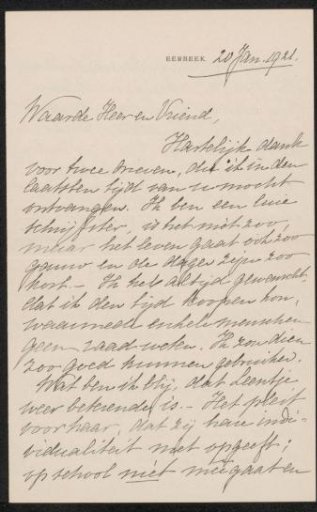 EERBEEK. 20 Jan. 1921.
Waarde Heer en Vriend,
Hartelijk dank
voor twee brieven, die ik in den
laatsten tijd van u mocht
ontvangen. Ik ben een luie
schrijfster, is het niet zoo,
maar het leven gaat ook zoo
gauw en de dagen zijn zoo
kort. – Ik heb altijd gewenscht,
dat ik den tijd koopen kon,
waarmede enkele menschen
geen raad weten. Ik zou dien
zoo goed kunnen gebruiken.
Wat ben ik blij, dat Leentje
weer beterende is. – Het pleit
voor haar, dat zij haar indi-
vidualiteit niet opgeeft;
op school niet meegaat en